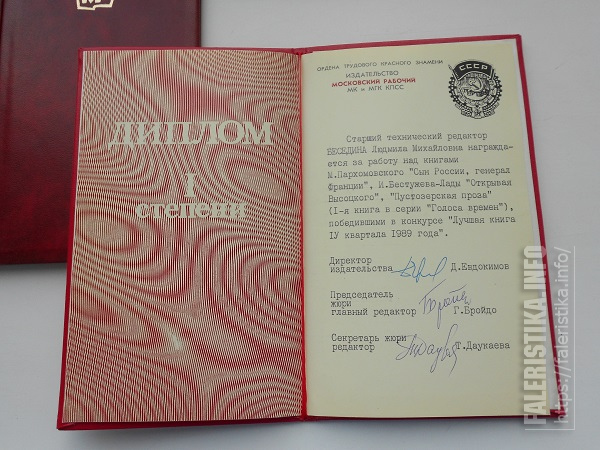 ДИПЛОМ
I
степени
ОРДЕНА ТРУДОВОГО КРАСНОГО ЗНАМЕНИ
ИЗДАТЕЛЬСТВО
МОСКОВСКИЙ РАБОЧИЙ
МК и МГК КПСС
СССР
Старший технический редактор
БЕСЕДИНА Людмила Михайловна награжда-
ется за работу над книгами
М.Пархомовского "Сын России, генерал
Франции", И.Бестужева-Лады "Открывая
Высоцкого", "Пустозерская проза"
(I-я книга в серии "Голоса времен"),
победившими в конкурсе "Лучшая книга
IУ квартала 1989 года".
Директор
издательства Д.Евдокимов
Председатель
жюри
главный редактор Г.Бройдо
Секретарь жюри
редактор Т.Даукаева
FALERISTIKA.INFO
https://faleristika.info/